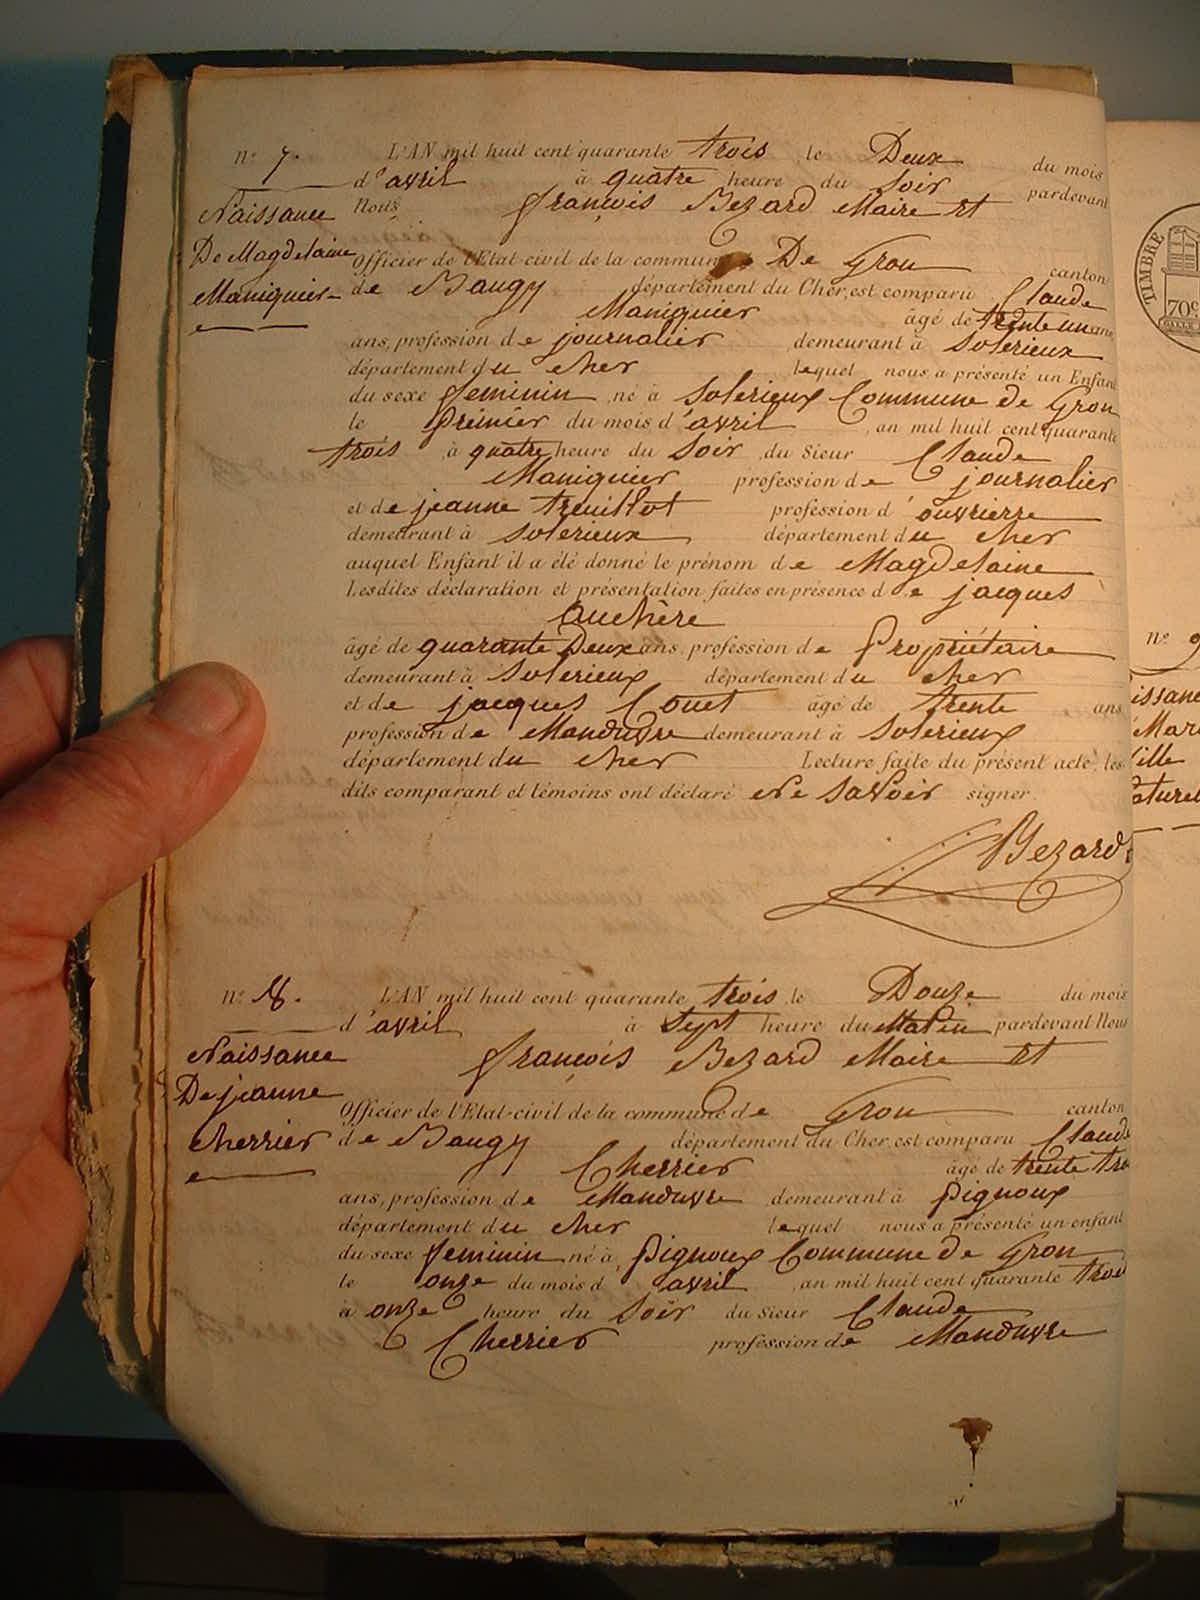 n° 7.
Naissance
De Magdelaine
Maniquier
L'AN mil huit cent quarante trois le Deux du mois
d'avril à quatre heure du Soir pardevant
Nous françois Bezard Maire Et
Officier de l'Etat-civil de la commune De Gron canton
de Baugy département du Cher, est comparu Claude
Maniquier âgé de trente un ans
ans, profession de journalier demeurant à Solerieux
département du cher lequel nous a présenté un Enfant
du sexe feminin né à Solerieux Commune de Gron
le prémier du mois d'avril, an mil huit cent quarante
trois, à quatre heure du Soir, du Sieur Claude
Maniquier profession de journalier
et de jeanne treuillot profession d'ouvrierre
demeurant à Solerieux département du cher
auquel Enfant il a été donné le prénom de Magdelaine
Lesdites déclaration et présentation faites en présence de jacques
Auchère
âgé de quarante Deux ans, profession de Propriétaire
demeurant à Solerieux département du cher
et de jacques Couet âgé de trente ans
profession de Manduvre demeurant à Solerieux
département du cher Lecture faite du présent acte, les
dits comparant et témoins ont déclaré Ne Savoir signer
Bezard
n° 8.
Naissance
De jeanne
Cherrier
L'AN mil huit cent quarante trois, le Douze du mois
d'avril à Sept heure du Matin pardevant Nous
françois Bezard Maire Et
Officier de l'Etat-civil de la commune de Gron canton
de Baugy département du Cher, est comparu Claude
Cherrier âgé de trente tro
ans, profession de Manduvre demeurant à pignoux
département du cher lequel nous a présenté un enfant
du sexe feminin né à pignoux Commune de Gron
le onze du mois d avril, an mil huit cent quarante trois
à onze heure du Soir du Sieur Claude
Cherrier profession de Manduvre
TIMBRE
70c
n° 9
issance
Mar
fille
aturel